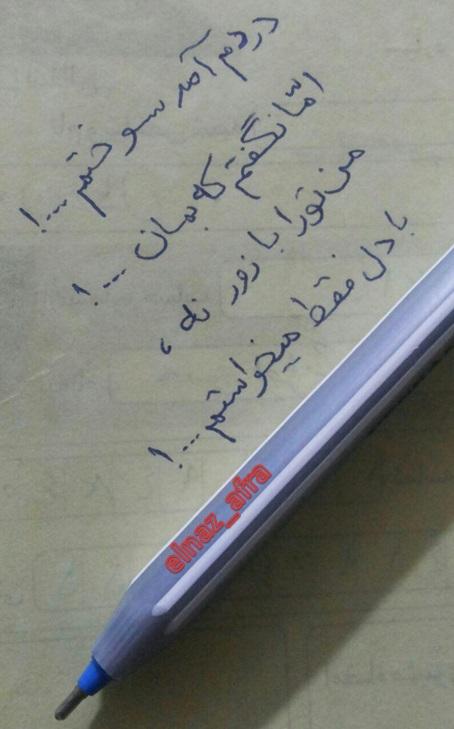 دردم آمد سوختم...!
امّا نگفتم که بمان...!
من تورا با زور نه،
با دل فقط میخواستم...!
elnaz_afra